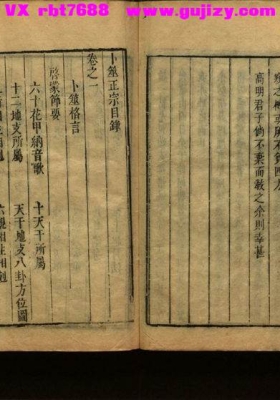 VX rbt7688    www.gujizy.com
高明君子倘不棄而敎之余則幸甚
卜筮正宗目錄
卷之一
卜筮格言
啓蒙節要
六十花甲納音歌
十天干所屬
十二地支所屬
天干地支八卦方位圖